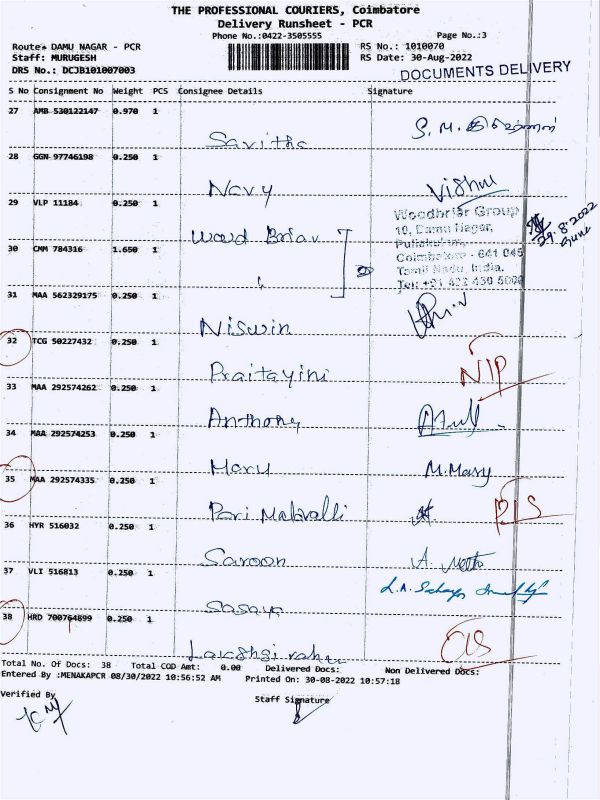 THE PROFESSIONAL COURIERS, Coimbatore
Delivery Runsheet - PCR
Phone No.:0422-3505555 Page No.:3
Route: DAMU NAGAR - PCR RS No.: 1010070
Staff: MURUGESH RS Date: 30-Aug-2022
DRS No.: DCJB101007003 DOCUMENTS DELIVERY
S No Consignment No Weight PCS Consignee Details Signature
27 AMB 530122147 0.970 1
Savitha S. M.
28 GGN 97746198 0.250 1
Navy Vishnu
29 VLP 11184 0.250 1
Wood Briar
Woodbriar Group
10, Damu Nagar,
Puliakulam,
Coimbatore - 641 045
Tamil Nadu, India.
Tel: +91 422 430 5000
29.8.2022
30 CMM 784316 1.650 1
"
31 MAA 562329175 0.250 1
Niswin
32 TCG 50227432 0.250 1
Praitayini NIP
33 MAA 292574262 0.250 1
Anthony
34 MAA 292574253 0.250 1
Mary M. Mary
35 MAA 292574335 0.250 1
Pari Malavalli DLS
36 HYR 516032 0.250 1
Saroon
37 VLI 516813 0.250 1
Sasaya
38 HRD 700764899 0.250 1
CLS
Total No. Of Docs: 38 Total COD Amt: 0.00 Delivered Docs: Non Delivered Docs:
Entered By :MENAKAPCR 08/30/2022 10:56:52 AM Printed On: 30-08-2022 10:57:18
Verified By Staff Signature